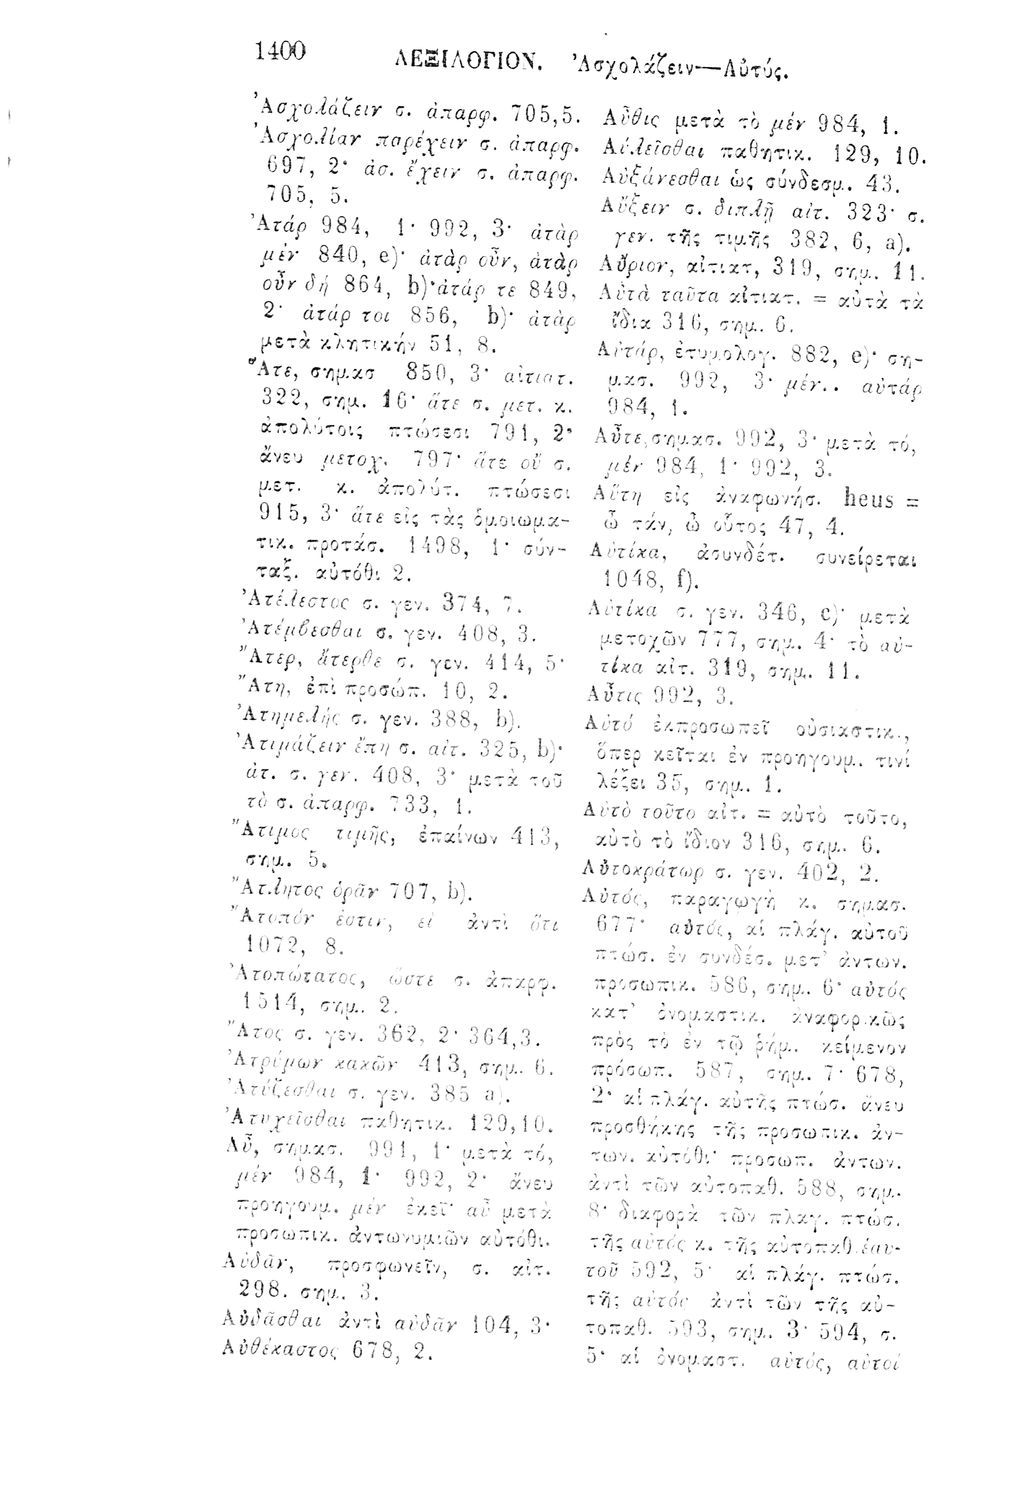 1400 ΛΕΞΙΛΟΓΙΟΝ. Ἀσχολάζειν—Αὐτός.
Ἀσχολάζειν σ. ἀπαρφ. 705,5.
Ἀσχολίαν παρέχειν σ. ἀπαρφ.
697, 2· ἀσ. ἔχειν σ. ἀπαρφ.
705, 5.
Ἀτάρ 984, 1· 992, 3· ἀτὰρ
μέν 840, e)· ἀτὰρ οὖν, ἀτὰρ
οὖν δή 864, b)·ἀτάρ τε 849,
2· ἀτάρ τοι 856, b)· ἀτὰρ
μετὰ κλητικήν 51, 8.
Ἅτε, σημασ 850, 3· αἰτιατ.
322, σημ. 16· ἅτε σ. μετ. κ.
ἀπολύτοις πτώσεσι 791, 2·
ἄνευ μετοχ. 797· ἅτε οὐ σ.
μετ. κ. ἀπολύτ. πτώσεσι
915, 3· ἅτε εἰς τὰς ὁμοιωμα-
τικ. προτάσ. 1498, 1· σύν-
ταξ. αὐτόθι 2.
Ἀτέλεστος σ. γεν. 374, 7.
Ἀτέμβεσθαι σ. γεν. 408, 3.
Ἄτερ, ἄτερθε σ. γεν. 414, 5·
Ἄτη, ἐπὶ προσώπ. 10, 2.
Ἀτημελής σ. γεν. 388, b).
Ἀτιμάζειν ἔπη σ. αἰτ. 325, b)·
ἀτ. σ. γεν. 408, 3· μετὰ τοῦ
τὸ σ. ἀπαρφ. 733, 1.
Ἄτιμος τιμῆς, ἐπαίνων 413,
σημ. 5.
Ἄτλητος ὁρᾶν 707, b).
Ἄτοπόν ἐστιν, εἰ ἀντὶ ὅτι
1072, 8.
Ἀτοπώτατος, ὥστε σ. ἀπαρφ.
1514, σημ. 2.
Ἆτος σ. γεν. 362, 2· 364,3.
Ἀτρύμων κακῶν 413, σημ. 6.
Ἀτύζεσθαι σ. γεν. 385 a).
Ἀτυχεῖσθαι παθητικ. 129,10.
Αὖ, σημασ. 991, 1· μετὰ τό,
μέν 984, 1· 992, 2· ἄνευ
προηγουμ. μέν ἐκεῖ· αὖ μετὰ
προσωπικ. ἀντωνυμιῶν αὐτόθι.
Αὐδᾶν, προσφωνεῖν, σ. αἰτ.
298. σημ. 3.
Αὐδᾶσθαι ἀντὶ αὐδᾶν 104, 3·
Αὐθέκαστος 678, 2.
Αὖθις μετὰ τὸ μέν 984, 1.
Αὐλεῖσθαι παθητικ. 129, 10.
Αὐξάνεσθαι ὡς σύνδεσμ. 43.
Αὔξειν σ. διπλῆ αἰτ. 323· σ.
γεν. τῆς τιμῆς 382, 6, a).
Αὔριον, αἰτιατ, 319, σημ. 11.
Αὐτὰ ταῦτα αἰτιατ. = αὐτὰ τὰ
ἴδια 316, σημ. 6.
Αὐτάρ, ἐτυμολογ. 882, e)· ση-
μασ. 992, 3· μέν.. αὐτάρ
984, 1.
Αὖτε,σημασ. 992, 3· μετὰ τό,
μέν 984, 1· 992, 3.
Αὕτη εἰς ἀναφωνήσ. heus =
ὦ τάν, ὦ οὗτος 47, 4.
Αὐτίκα, ἀσυνδέτ. συνείρεται
1048, f).
Αὐτίκα σ. γεν. 346, c)· μετὰ
μετοχῶν 777, σημ. 4· τὸ αὐ-
τίκα αἰτ. 319, σημ. 11.
Αὖτις 992, 3.
Αὐτό ἐκπροσωπεῖ οὐσιαστικ.,
ὅπερ κεῖται ἐν προηγουμ. τινὶ
λέξει 35, σημ. 1.
Αὐτὸ τοῦτο αἰτ. = αὐτὸ τοῦτο,
αὐτὸ τὸ ἴδιον 316, σημ. 6.
Αὐτοκράτωρ σ. γεν. 402, 2.
Αὐτός, παραγωγὴ κ. σημασ.
677· αὐτός, αἱ πλάγ. αὐτοῦ
πτώσ. ἐν συνδέσ. μετ' ἀντων.
προσωπικ. 586, σημ. 6· αὐτός
κατ' ὀνομαστικ. ἀναφορικῶς
πρὸς τὸ ἐν τῷ ῥήμ. κείμενον
πρόσωπ. 587, σημ. 7· 678,
2· αἱ πλάγ. αὐτῆς πτώσ. ἄνευ
προσθήκης τῆς προσωπικ. ἀν-
των. αὐτόθι· προσωπ. ἀντων.
ἀντὶ τῶν αὐτοπαθ. 588, σημ.
8· διαφορὰ τῶν πλαγ. πτώσ.
τῆς αὐτός κ. τῆς αὐτοπαθ.ἑαυ-
τοῦ 592, 5· αἱ πλάγ. πτώσ.
τῆς αὐτός ἀντὶ τῶν τῆς αὐ-
τοπαθ. 593, σημ. 3· 594, σ.
5· αἱ ὀνομαστ. αὐτός, αὐτοί